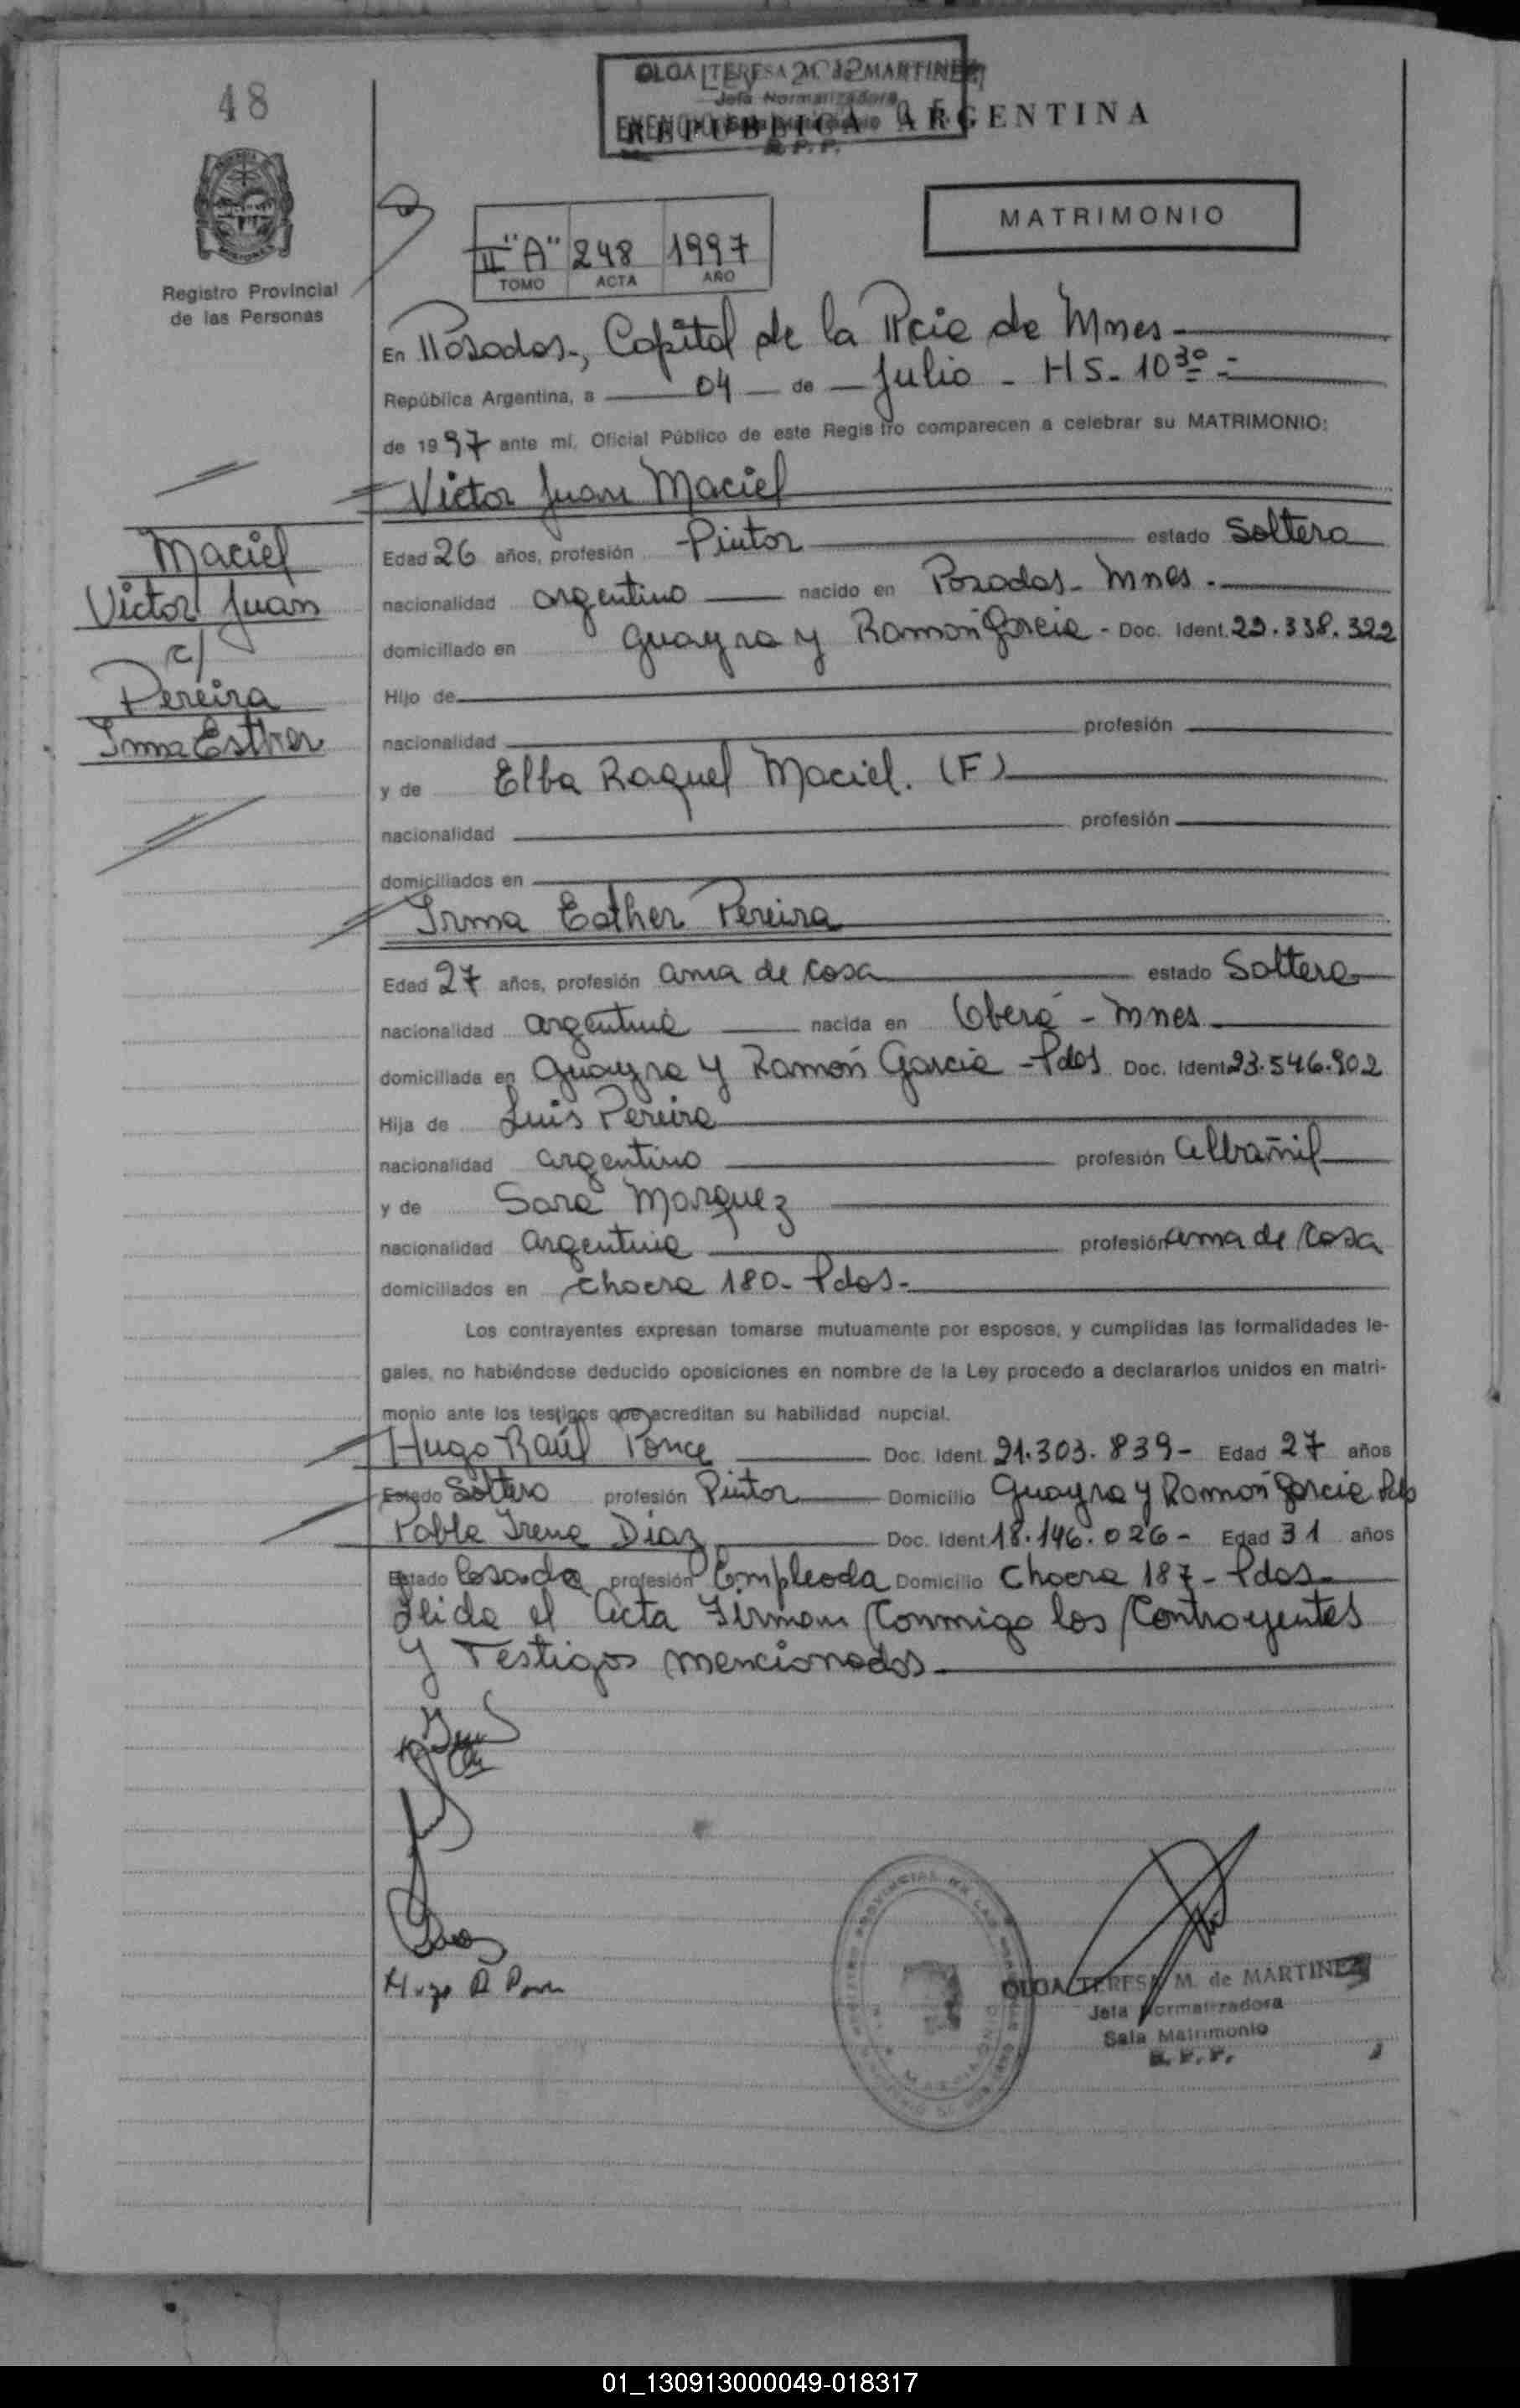 48
OLGA TERESA M. de MARTINEZ
Jefa Normalizadora
REPUBLICA ARGENTINA
R. P. P.
MATRIMONIO
II "A" 248 1997
TOMO ACTA AÑO
Registro Provincial
de las Personas
En Posadas., Capital de la Pcia de Mnes
República Argentina, a 04 de Julio - HS. 10 30
de 1997 ante mí, Oficial Público de este Registro comparecen a celebrar su MATRIMONIO:
Victor Juan Maciel
Maciel
Victor Juan
c/
Pereira
Irma Esther
Edad 26 años, profesión Pintor estado Soltero
nacionalidad argentino nacido en Posadas - Mnes.
domiciliado en Guayra y Ramón Garcia - Doc. Ident. 22.338.322
Hijo de
nacionalidad profesión
y de Elba Raquel Maciel. (F)
nacionalidad profesión
domiciliados en
Irma Esther Pereira
Edad 27 años, profesión ama de casa estado Soltera
nacionalidad argentina nacida en Oberá - Mnes
domiciliada en Guayra y Ramón Garcia - Pdas Doc. Ident 23.546.902
Hija de Luis Pereira
nacionalidad argentino profesión albañil
y de Sara Marquez
nacionalidad argentina profesión ama de casa
domiciliados en chacra 180 - Pdas -
Los contrayentes expresan tomarse mutuamente por esposos, y cumplidas las formalidades le-
gales, no habiéndose deducido oposiciones en nombre de la Ley procedo a declararlos unidos en matri-
monio ante los testigos que acreditan su habilidad nupcial.
Hugo Raúl Ponce Doc. Ident. 21.303.839 - Edad 27 años
Estado Soltero profesión Pintor Domicilio Guayra y Ramón Garcia
Irene Diaz Doc. Ident 18.146.026 - Edad 31 años
Estado Casada profesión Empleada Domicilio Chacra 187 - Pdas -
Leida el Acta Firman Conmigo los Contrayentes
y Testigos mencionados
Hugo R Ponce
OLGA TERESA M. de MARTINEZ
Jefa Normalizadora
Sala Matrimonio
R. P. P.
01_130913000049-018317